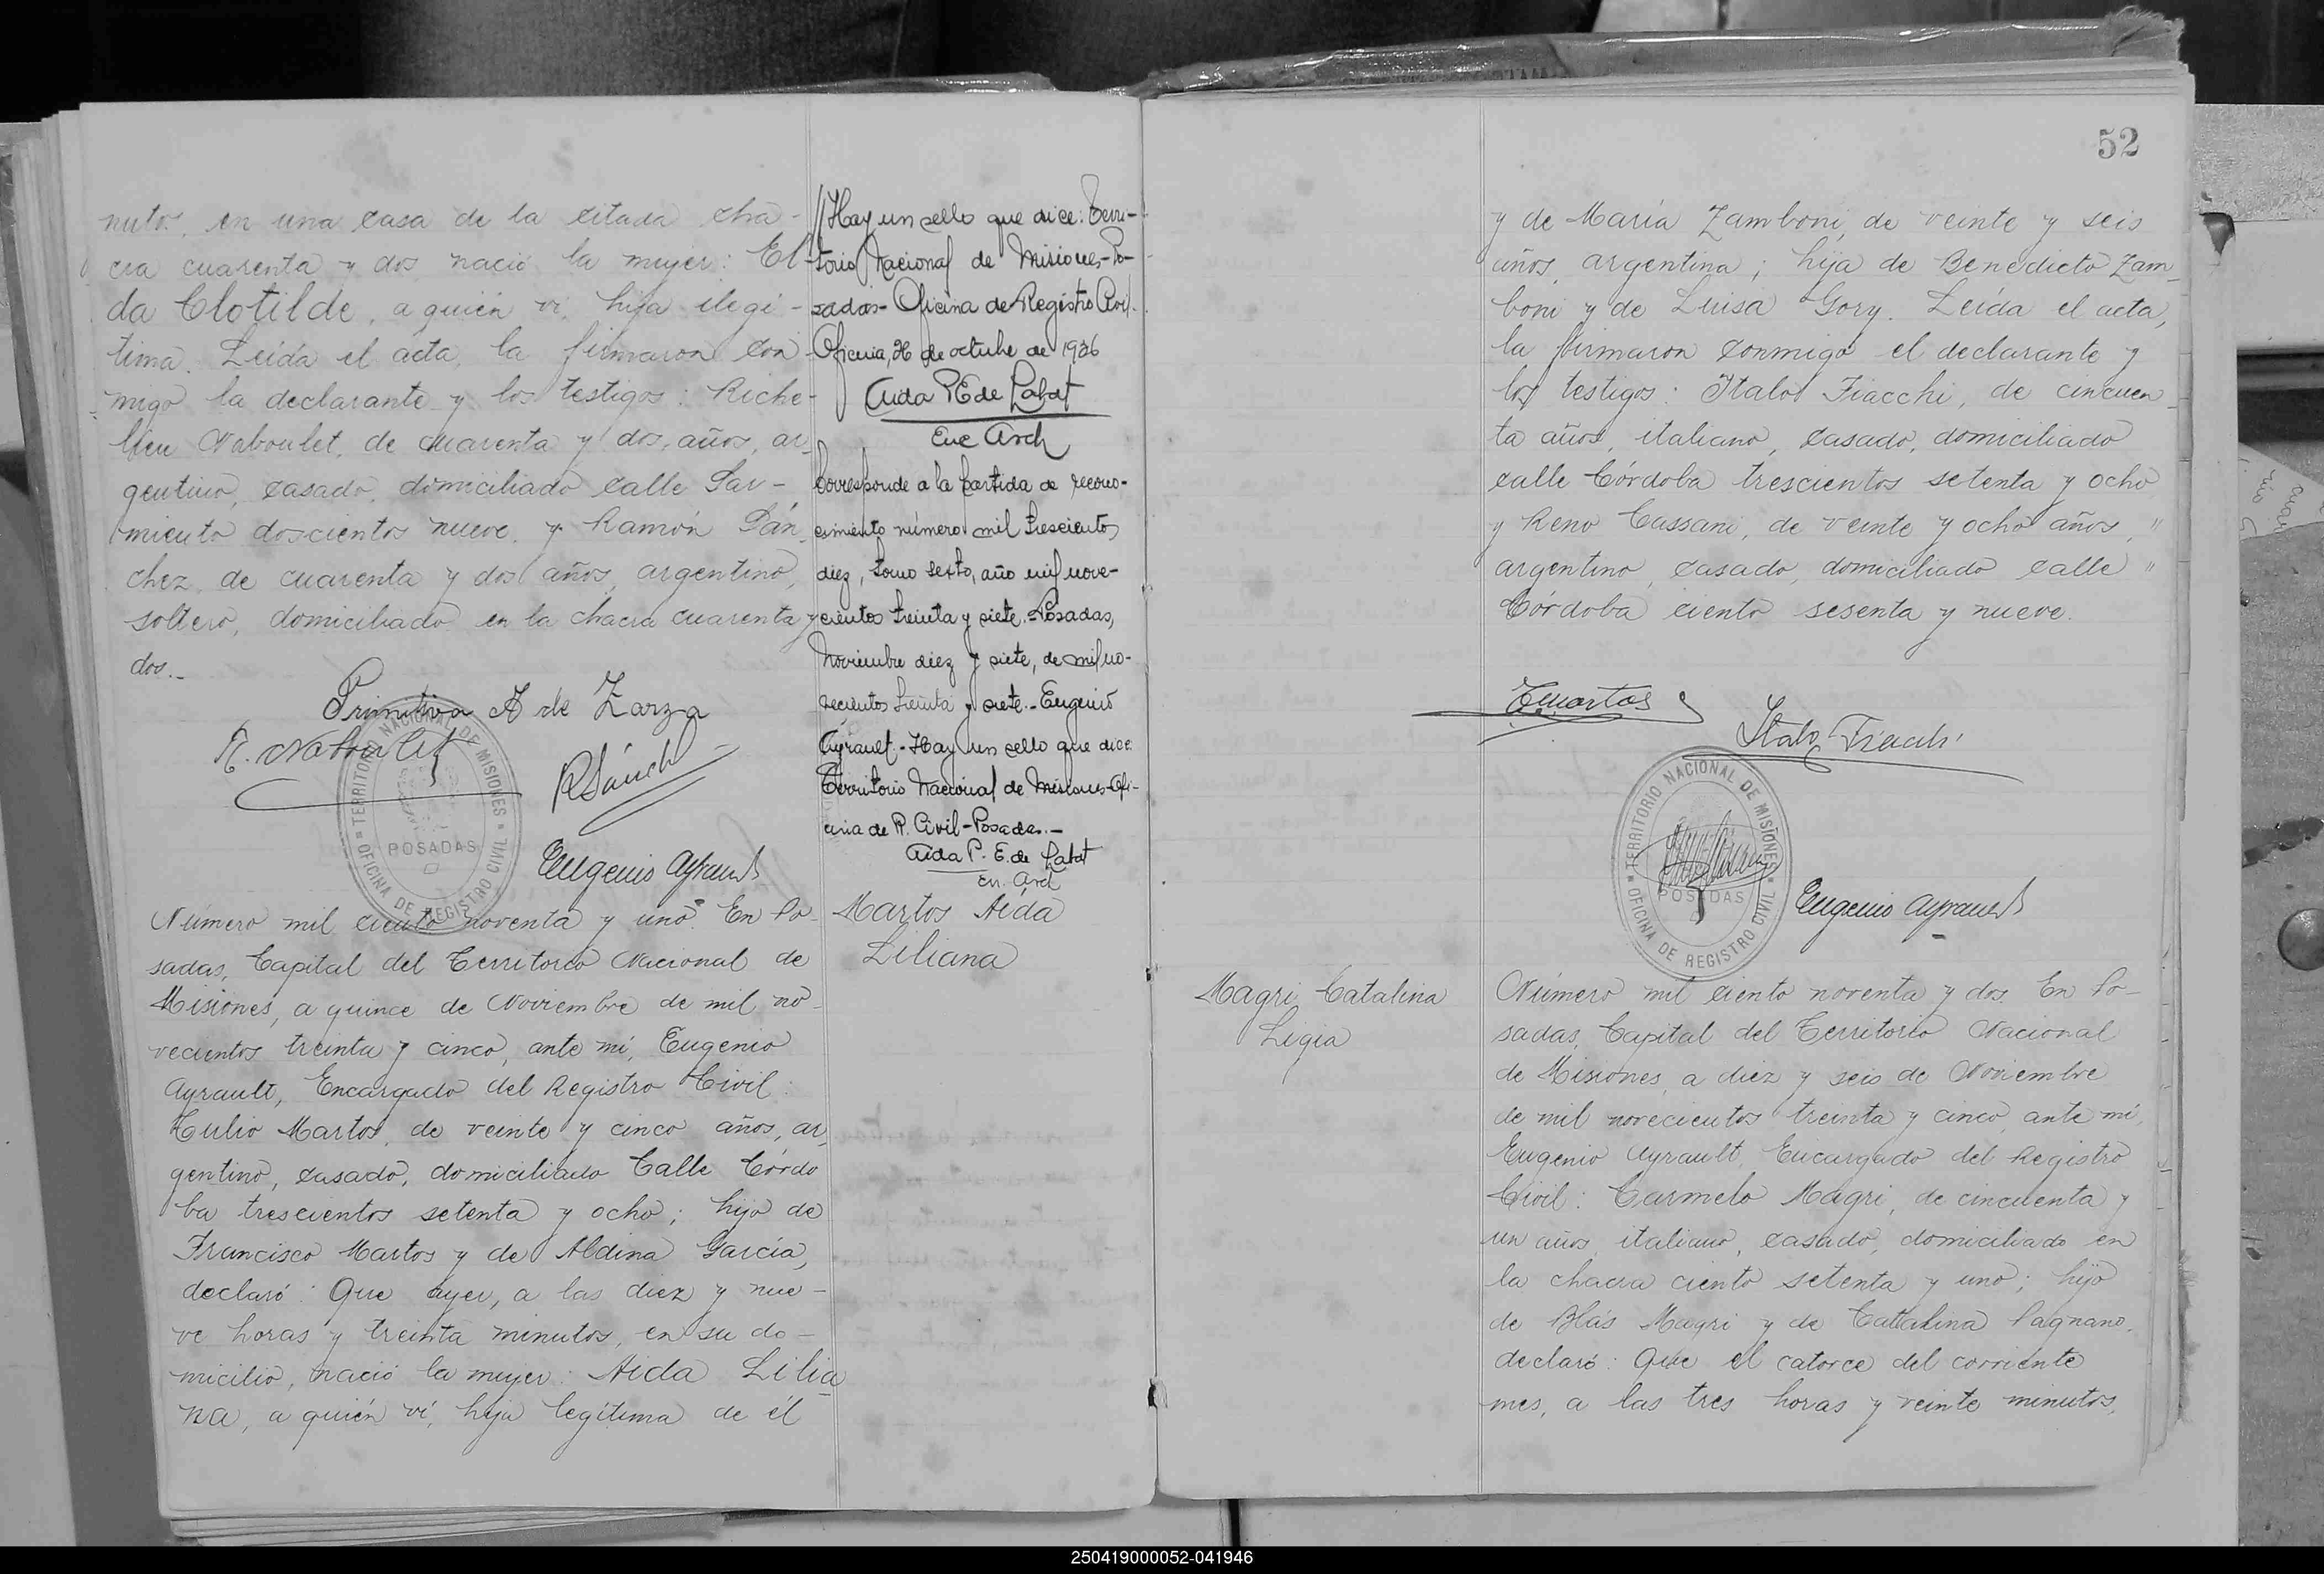 nutos, en una casa de la citada cha-
cra cuarenta y dos nació la mujer: El-
da Clotilde, a quién vi, hija ilegi-
tima. Leída el acta, la firmaron con
migo la declarante y los testigos: Riche-
lieu Naboulet, de cuarenta y dos años, ar
gentino, casado, domiciliado calle Sar-
miento doscientos nueve, y Ramón Sán
chez, de cuarenta y dos años, argentino,
soltero, domiciliado en la chacra cuarenta y
dos.-
Primitiva A de Zarza
R. Naboulet
RSánchez
TERRITORIO NACIONAL DE MISIONES
POSADAS
OFICINA DE REGISTRO CIVIL
Eugenio Ayrault
Número mil ciento noventa y uno. En Po-
sadas, Capital del Territorio Nacional de
Misiones, a quince de Noviembre de mil no-
vecientos treinta y cinco, ante mí, Eugenio
Ayrault, Encargado del Registro Civil:
Tulio Martos, de veinte y cinco años, ar
gentino, casado, domiciliado Calle Córdo
ba trescientos setenta y ocho; hijo de
Francisco Martos y de Aldina García,
declaró: Que ayer, a las diez y nue-
ve horas y treinta minutos, en su do-
micilio, nació la mujer: Aida Lilia
na, a quién ví, hija legítima de él
//Hay un sello que dice: Terri-
torio Nacional de Misiones-Po-
sadas- Oficina de Registro Civil.
Oficina, 26 de octubre de 1936
Aida P E de Labat
Enc Arch
Corresponde a la partida de recono-
cimiento número mil trescientos
diez, tomo sexto, año mil nove-
cientos treinta y siete.-Posadas,
Noviembre diez y siete, de mil no-
vecientos treinta y siete.-Eugenio
Ayrault.-Hay un sello que dice:
Territorio Nacional de Misiones-Ofi-
cina de R. Civil-Posadas.-
Aida P. E. de Labat
En. Arch
Martos Aida
Liliana
52
y de María Zamboni, de veinte y seis
años, argentina; hija de Benedicto Zam
boni y de Luisa Gory. Leída el acta,
la firmaron conmigo el declarante y
los testigos: Italo Fiacchi, de cincuen-
ta años, italiano, casado, domiciliado
calle Córdoba trescientos setenta y ocho
y Reno Cassani, de veinte y ocho años, "
argentino, casado, domiciliado calle "
Córdoba ciento sesenta y nueve.
TMartos
Italo Fiacchi
TERRITORIO NACIONAL DE MISIONES
POSADAS
OFICINA DE REGISTRO CIVIL
Eugenio Ayrault
Magri Catalina
Ligia
Número mil ciento noventa y dos. En Po-
sadas, Capital del Territorio Nacional
de Misiones, a diez y seis de Noviembre
de mil novecientos treinta y cinco, ante mí,
Eugenio Ayrault, Encargado del Registro
Civil: Carmelo Magri, de cincuenta y
un años, italiano, casado, domiciliado en
la chacra ciento setenta y uno; hijo
de Blás Magri y de Catalina Pagnano,
declaró: Que el catorce del corriente
mes, a las tres horas y veinte minutos,
250419000052-041946